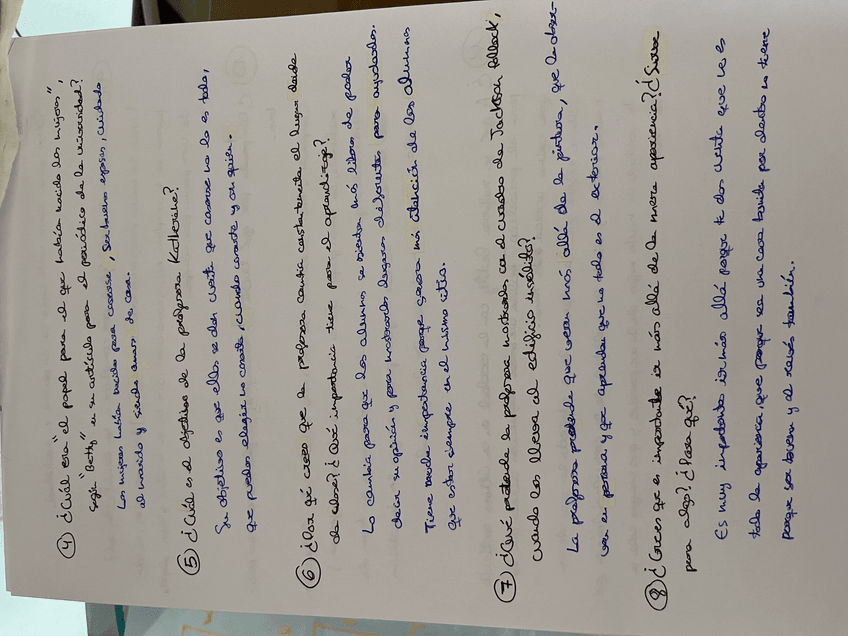 ④ ¿Cuál era "el papel para el que habían nacido las mujeres",
según "Betty" en su artículo para el periódico de la universidad?
Las mujeres habían nacido para casarse, ser buenas esposas, cuidando
al marido y siendo amas de casa.
⑤ ¿Cuál es el objetivo de la profesora Katherine?
Su objetivo es que ellas se den cuenta que casarse no lo es todo,
que puedes elegir no casarte, cuando casarte y con quien.
⑥ ¿Por qué crees que la profesora cambia constantemente el lugar donde
da clase? ¿Qué importancia tiene para el aprendizaje?
Lo cambia para que los alumnos se sientan más libres de poder
decir su opinión y para mostrarles lugares diferentes para ayudarles.
Tiene mucha importancia porque ganas más atención de los alumnos
que estar siempre en el mismo sitio.
⑦ ¿Qué pretende la profesora mostrando con el cuadro de Jackson Pollock,
cuando las lleva al edificio insólito?
La profesora pretende que vean más allá de la pintura, que la obser-
ven en persona y que aprendan que no todo es el exterior.
⑧ ¿Crees que es importante ir más allá de la mera apariencia? ¿Sirve
para algo? ¿Para qué?
Es muy importante ir más allá porque te das cuenta que no es
todo la apariencia, que porque sea una cosa bonita por dentro no tiene
porque ser buena y al revés también.